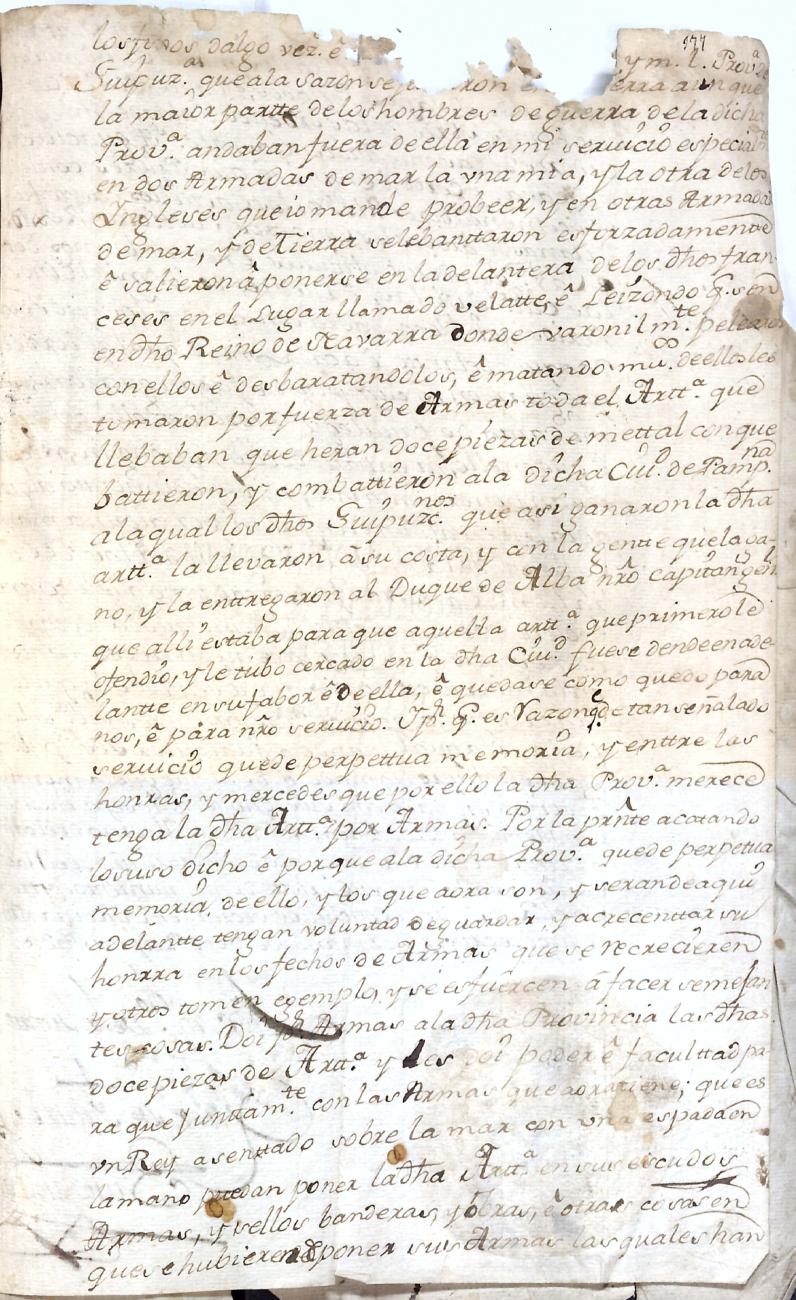 177
los fijos dalgo vez.^s ê y m. l. Prov.^a de
Guipuz.^a que a la sazon se ron en erra aunque
la maior partte de los hombres de guerra de la dicha
Prov.^a andaban fuera de ella en mi seruicio especialm^te
en dos Armadas de mar la vna mia, y la otra de los
Ingleses que io mande probeer, y en otras Armadas
de mar, y de Tierra se lebanttaron esforzadamentte
ê salieron â ponerse en la delantera de los dhos fran-
ceses en el Lugar llamado velatte, ê Leizondo q. son
en dho Reino de Navarra donde varonilm.^te pelearon
con ellos ê desbaratandolos, ê matando mu.^os de ellos les
tomaron por fuerza de Armas toda el Artt.^a que
llebaban que heran doce piezas de mettal con que
battieron, y combattieron a la dicha Ciu.^d de Pamp.^na
a la qual los dhos Guipuzc.^nos que asi ganaron la dha
artt.^a la llevaron â su costa, y con la gente que la ga-
no, y la enttregaron al Duque de Alba nrô capitan gen^l
que alli estaba para que aquella artt.^a que primero le
ofendio, y le tubo cercado en la dha Ciu.^d fuese dende en ade-
lantte en su fabor ê de ella, ê quedase como quedo para
nos, ê para nrô seruicio. Y p.^r q. es razon q.^e de tan señalado
seruicio quede perpettua memoria, y enttre las
honras, y mercedes que por ello la dha Prov.^a merece
tenga la dha Artt.^a por Armas. Por la prñte acatando
lo suso dicho ê porque a la dicha Prov.^a quede perpetua
memoria, de ello, y los que aora son, y seran de aqui
adelantte tengan voluntad de guardar, y acrecenttar su
honrra en los fechos de Armas que se recrecieren
y otros tomen egemplo, y se esfuercen â facer semejan
tes cosas. Doi p.^r Armas a la dha Provincia las dhas
doce piezas de Artt.^a y les doi poder ê faculttad pa-
ra que junttam.^te con las Armas que aora tiene; que es
vn Rey asenttado sobre la mar con vna espada en
la mano puedan poner la dha Artt.^a en sus escudos
Armas, y sellos banderas, y obras, ê otras cosas en
que se hubieren de poner sus Armas las quales han